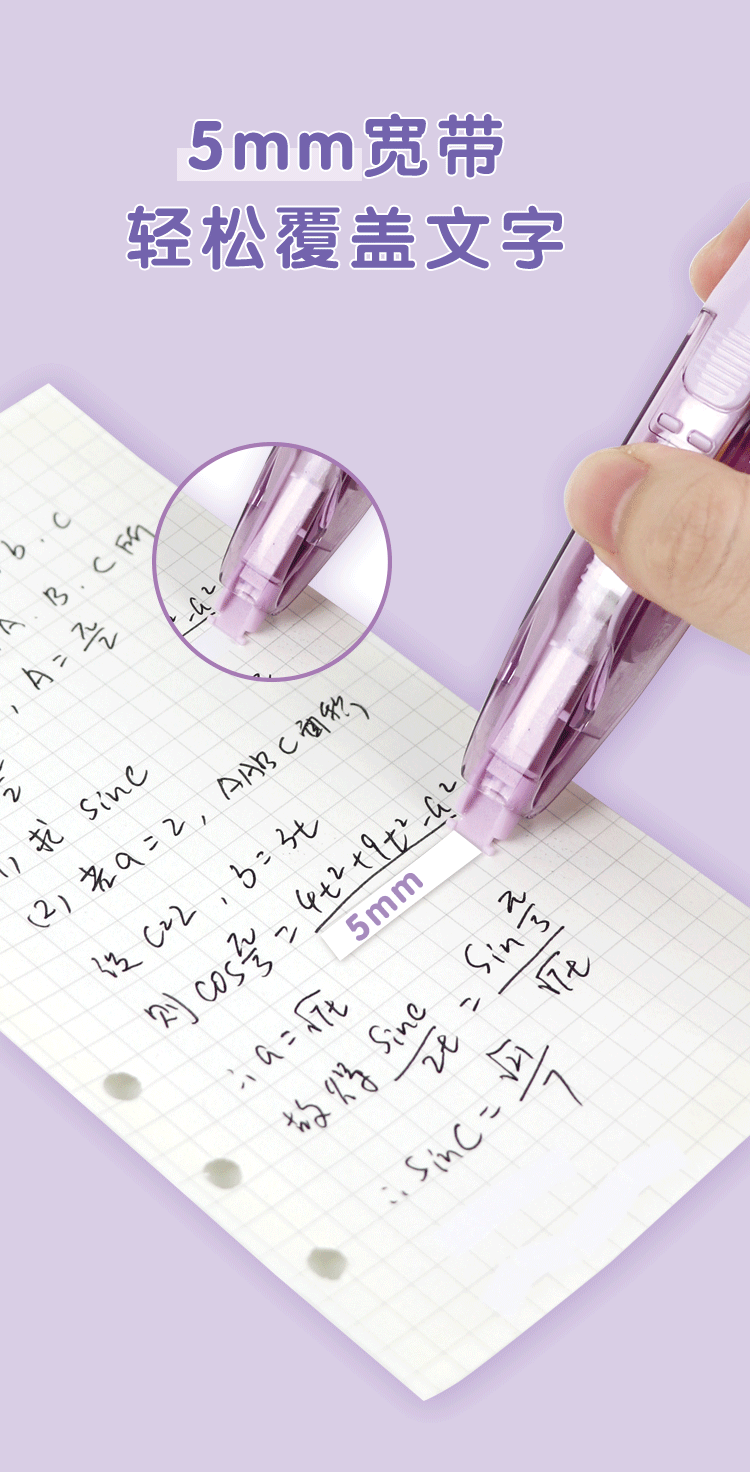 5mm宽带
轻松覆盖文字
b . C
A . B . C 所
, A = π/2
-a²
求 sinC
(2) 若a=2, △ABC面积
设 C=2 , b=3t
则 cosπ/3 = 4t²+9t²-a²
5mm
∴a=√7t
故得 sinC/2t = sinπ/3/√7t
∴sinC = √21/7